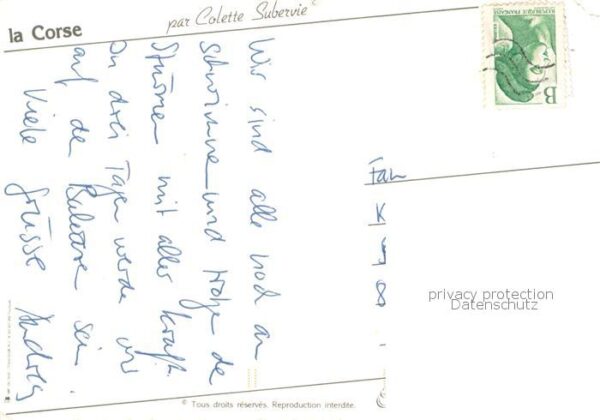 la Corse
par Colette Subervie
Wir sind alle noch am
Schwimmen und trotzen de
Stürmen mit aller Kraft.
In drei Tagen werde wir
auf de Rückreise sein
Viele Grüsse Andrea
REPUBLIQUE FRANÇAISE
B
Fam
K
privacy protection
Datenschutz
© Tous droits réservés. Reproduction interdite.